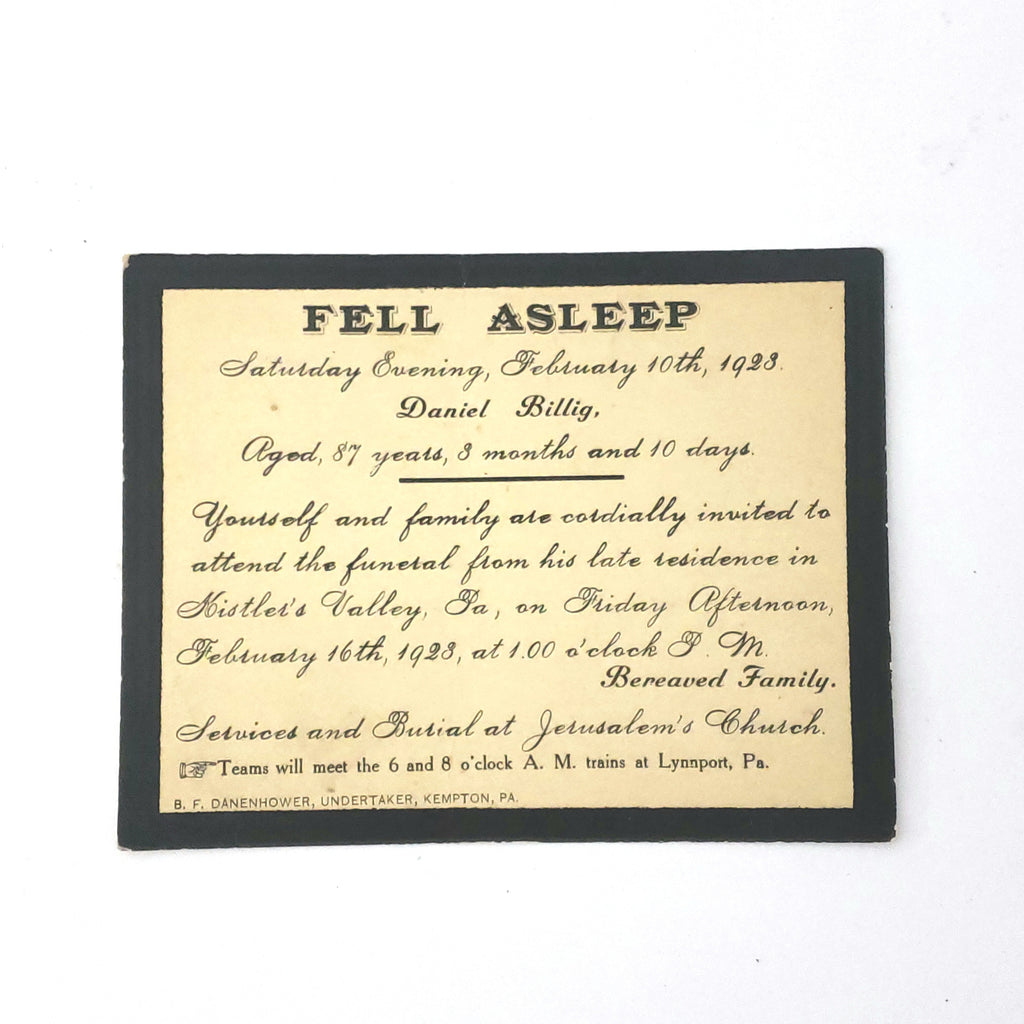 FELL ASLEEP
Saturday Evening, February 10th, 1923.
Daniel Billig,
Aged, 87 years, 3 months and 10 days.
Yourself and family are cordially invited to
attend the funeral from his late residence in
Kistler's Valley, Pa, on Friday Afternoon,
February 16th, 1923, at 1.00 o'clock P. M.
Bereaved Family.
Services and Burial at Jerusalem's Church.
☞Teams will meet the 6 and 8 o'clock A. M. trains at Lynnport, Pa.
B. F. DANENHOWER, UNDERTAKER, KEMPTON, PA.